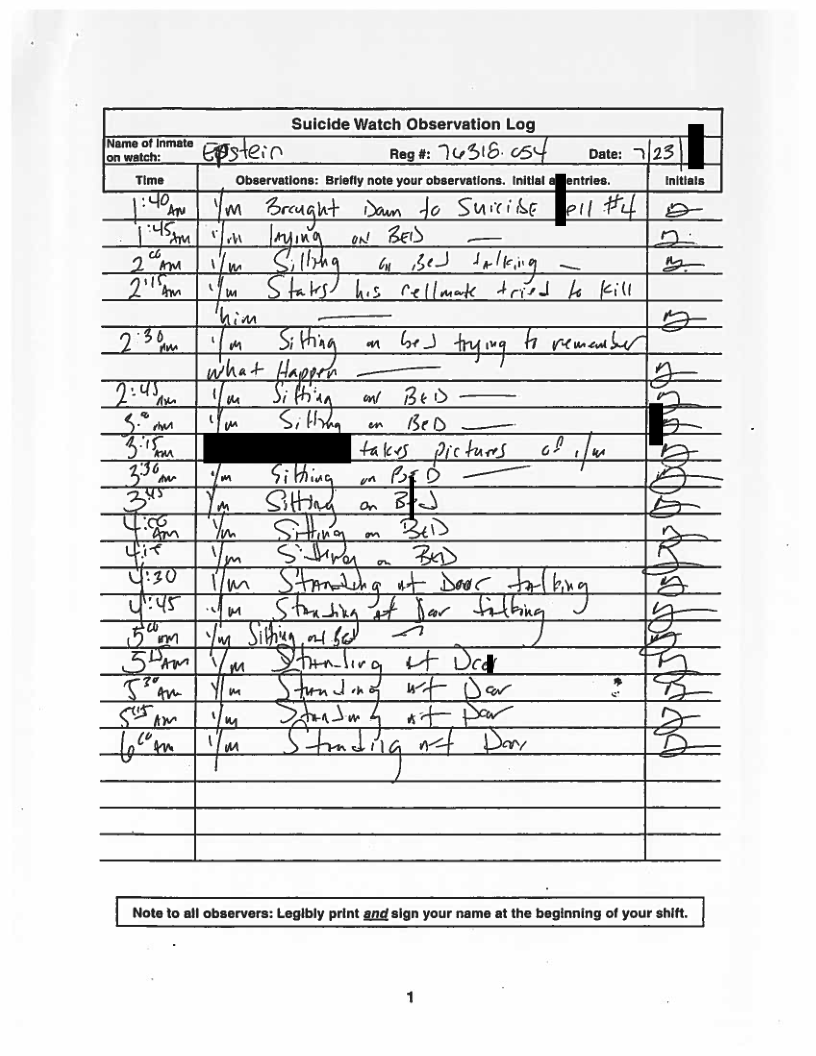 Suicide Watch Observation Log
Name of Inmate on watch: Epstein Reg #: 76318-054 Date: 7/23
Time Observations: Briefly note your observations. Initial entries. Initials
1:40 AM I/M Brought Down to Suicide ell #4
1:45 AM I/M laying on BED
2 00 AM I/M Sitting on Bed talking
2:15 AM I/M States his cellmate tried to kill
him
2:30 AM I/M Sitting on bed trying to remember
what Happen
2:45 AM I/M Sitting on BED
3:00 AM I/M Sitting on BED
3:15 AM takes pictures of I/M
3:30 AM I/M Sitting on BED
3:45 I/M Sitting on Bed
4:00 AM I/M Sitting on BED
4:15 I/M Sitting on BED
4:30 I/M Standing at Door talking
4:45 I/M Standing at Door talking
5 00 AM I/M Sitting on Bed
5 15 AM I/M Standing at Door
5 30 AM I/M Standing at Door
5:45 AM I/M Standing at Door
6 00 AM I/M Standing at Door
Note to all observers: Legibly print and sign your name at the beginning of your shift.
1